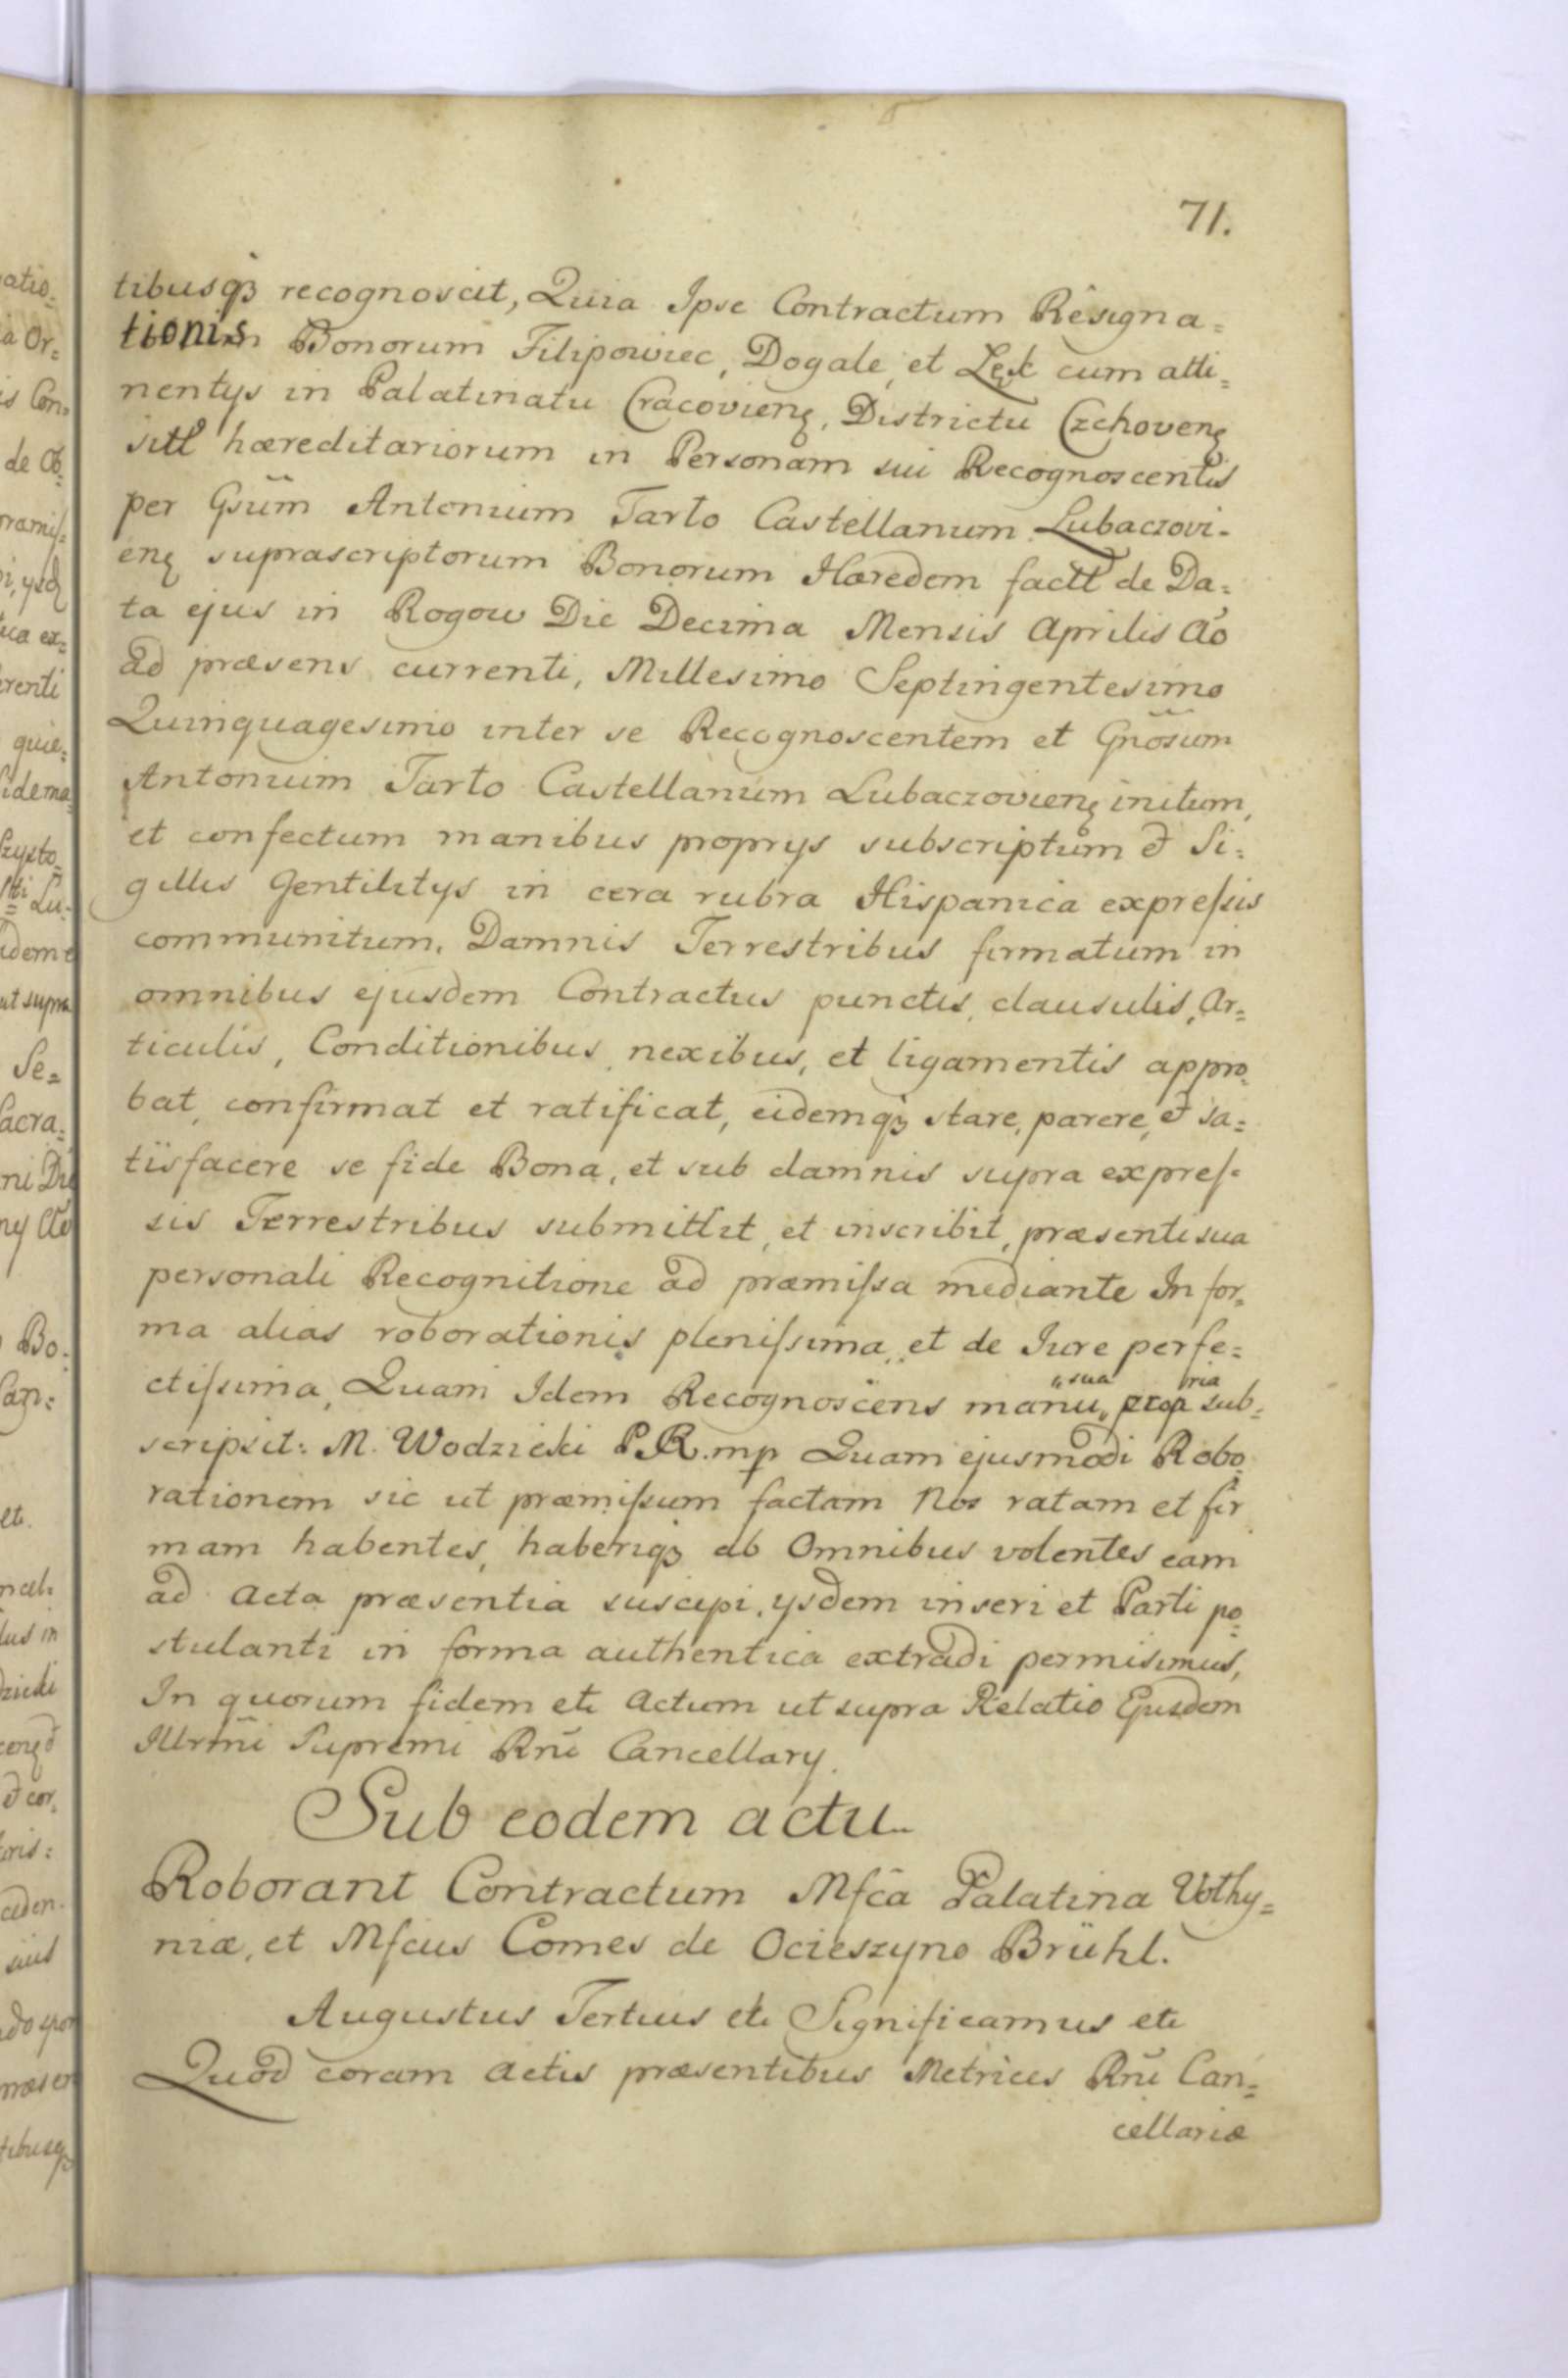 71.
tibusq₃ recognoscit, Quia Ipse Contractum Resigna=
tionis Bonorum Filipowiec, Dogale, et Lęk cum atti=
nentys in Palatinatu Cracovienę, Districtu Czchovenę
sitt hæreditariorum in Personam sui Recognoscentis
per Gsūm Antonium Tarło Castellanum Lubaczovi-
enę suprascriptorum Bonorum Hæredem factt de Da=
ta ejus in Rogow Die Decima Mensis Aprilis Aō
ad præsens currenti, Millesimo Septingentesimo
Quinquagesimo inter se Recognoscentem et Gnōsum
Antonium Tarło Castellanum Lubaczovienę initum,
et confectum manibus proprys subscriptum & Si=
gillis Gentilitys in cera rubra Hispanica expreſsis
communitum, Damnis Terrestribus firmatum in
omnibus ejusdem Contractus punctis, clausulis, Ar=
ticulis, Conditionibus, nexibus, et ligamentis appro=
bat, confirmat et ratificat, eidemq₃ stare, parere, & sa=
tisfacere se fide Bona, et sub damnis supra expreſ=
sis Terrestribus submittit, et inscribit, præsenti sua
personali Recognitione ad præmiſsa mediante In for=
ma alias roborationis pleniſsima, et de Iure perfe=
ctiſsima, Quam Idem Recognoscens manu „sua propria sub=
scripsit: M. Wodzicki P.R. mp Quam ejusmodi Robo=
rationem sic ut præmiſsum factam Nos ratam et fir
mam habentes, haberiq₃ ab Omnibus volentes eam
ad Acta præsentia suscipi, ysdem inseri et Parti po=
stulanti in forma authentica extradi permisimus,
In quorum fidem etc Actum ut supra Relatio Ejusdem
Illrmī Supremi Rnī Cancellary.
Sub eodem actu
Roborant Contractum Mfcā Palatina Vołhy=
niæ, et Mfcus Comes de Ocieszyno Brühl.
Augustus Tertius etc Significamus etc
Quod coram Actis præsentibus Metrices Rnī Can=
cellariæ